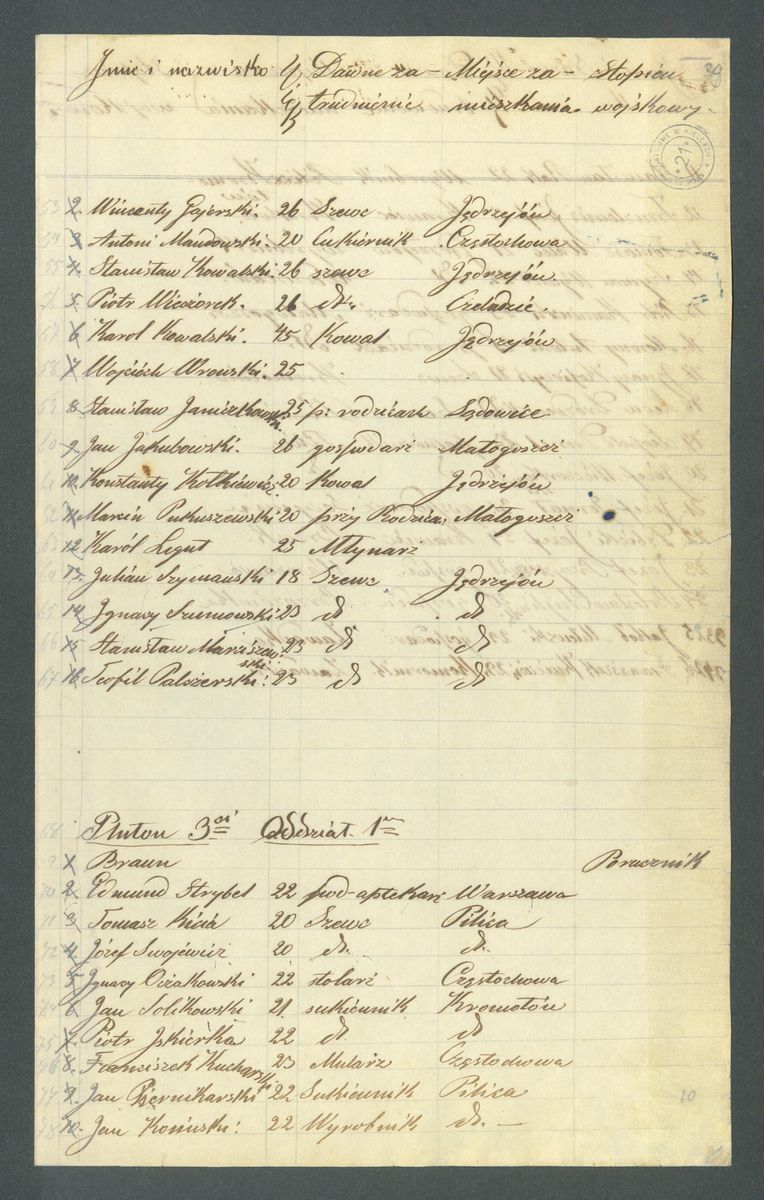 Imie i nazwisko Dawne za- Miejsce za- Stopień 29
trudnienie mieszkania wojskowy.
21
53 2. Wincenty Gajerski. 26 Szewc Jędrzejów
54 3. Antoni Mandowski. 20 Cukiernik Częstochowa
55 4. Stanisław Kowalski. 26 szewc Jędrzejów.
56 5. Piotr Wieczorek. 26 dt. Czeladzie.
57 6. Karol Kowalski. 45 Kowal Jędrzejów
58 7. Wojciech Wronski. 25
59 8. Stanisław Janiczkowski. 25 p: rodzicach Sędowice
60 9. Jan Jakubowski. 26 gospodarz Małogoszcz
61 10. Konstanty Kotkiewicz 20 Kowal Jędrzejów
62 11. Marcin Putuszewski 20 przy Rodzica: Małogoszcz
63 12. Karól Legut 25 Młynarz
64 13. Julian Szymanski 18 Szewc Jędrzejów
65 14. Ignacy Szumowski 23 dt dt
66 15. Stanisław Marszewski 23 dt dt
67 16. Teofil Palszerski: 23 dt dt
68 Pluton 3ci Oddział 1n
69 1. Braun Porucznik
70 2. Edmund Strybel 22 pod-aptekarz Warszawa
71 3. Tomasz Kicia 20 Szewc Pilica
72 4. Józef Swojewicz 20 dt. dt.
73 5. Ignacy Ociakowski 22 stolarz Częstochowa
74 6. Jan Solikowski 21 sukiennik Kromołów
75 7. Piotr Iskierka 22 dt dt
76 8. Franciszek Kucharski 23 Mularz Częstochowa
77 9. Jan Piernikarski 22 Sukiennik Pilica
10
78 10. Jan Koniuski: 22 Wyrobnik dt. —